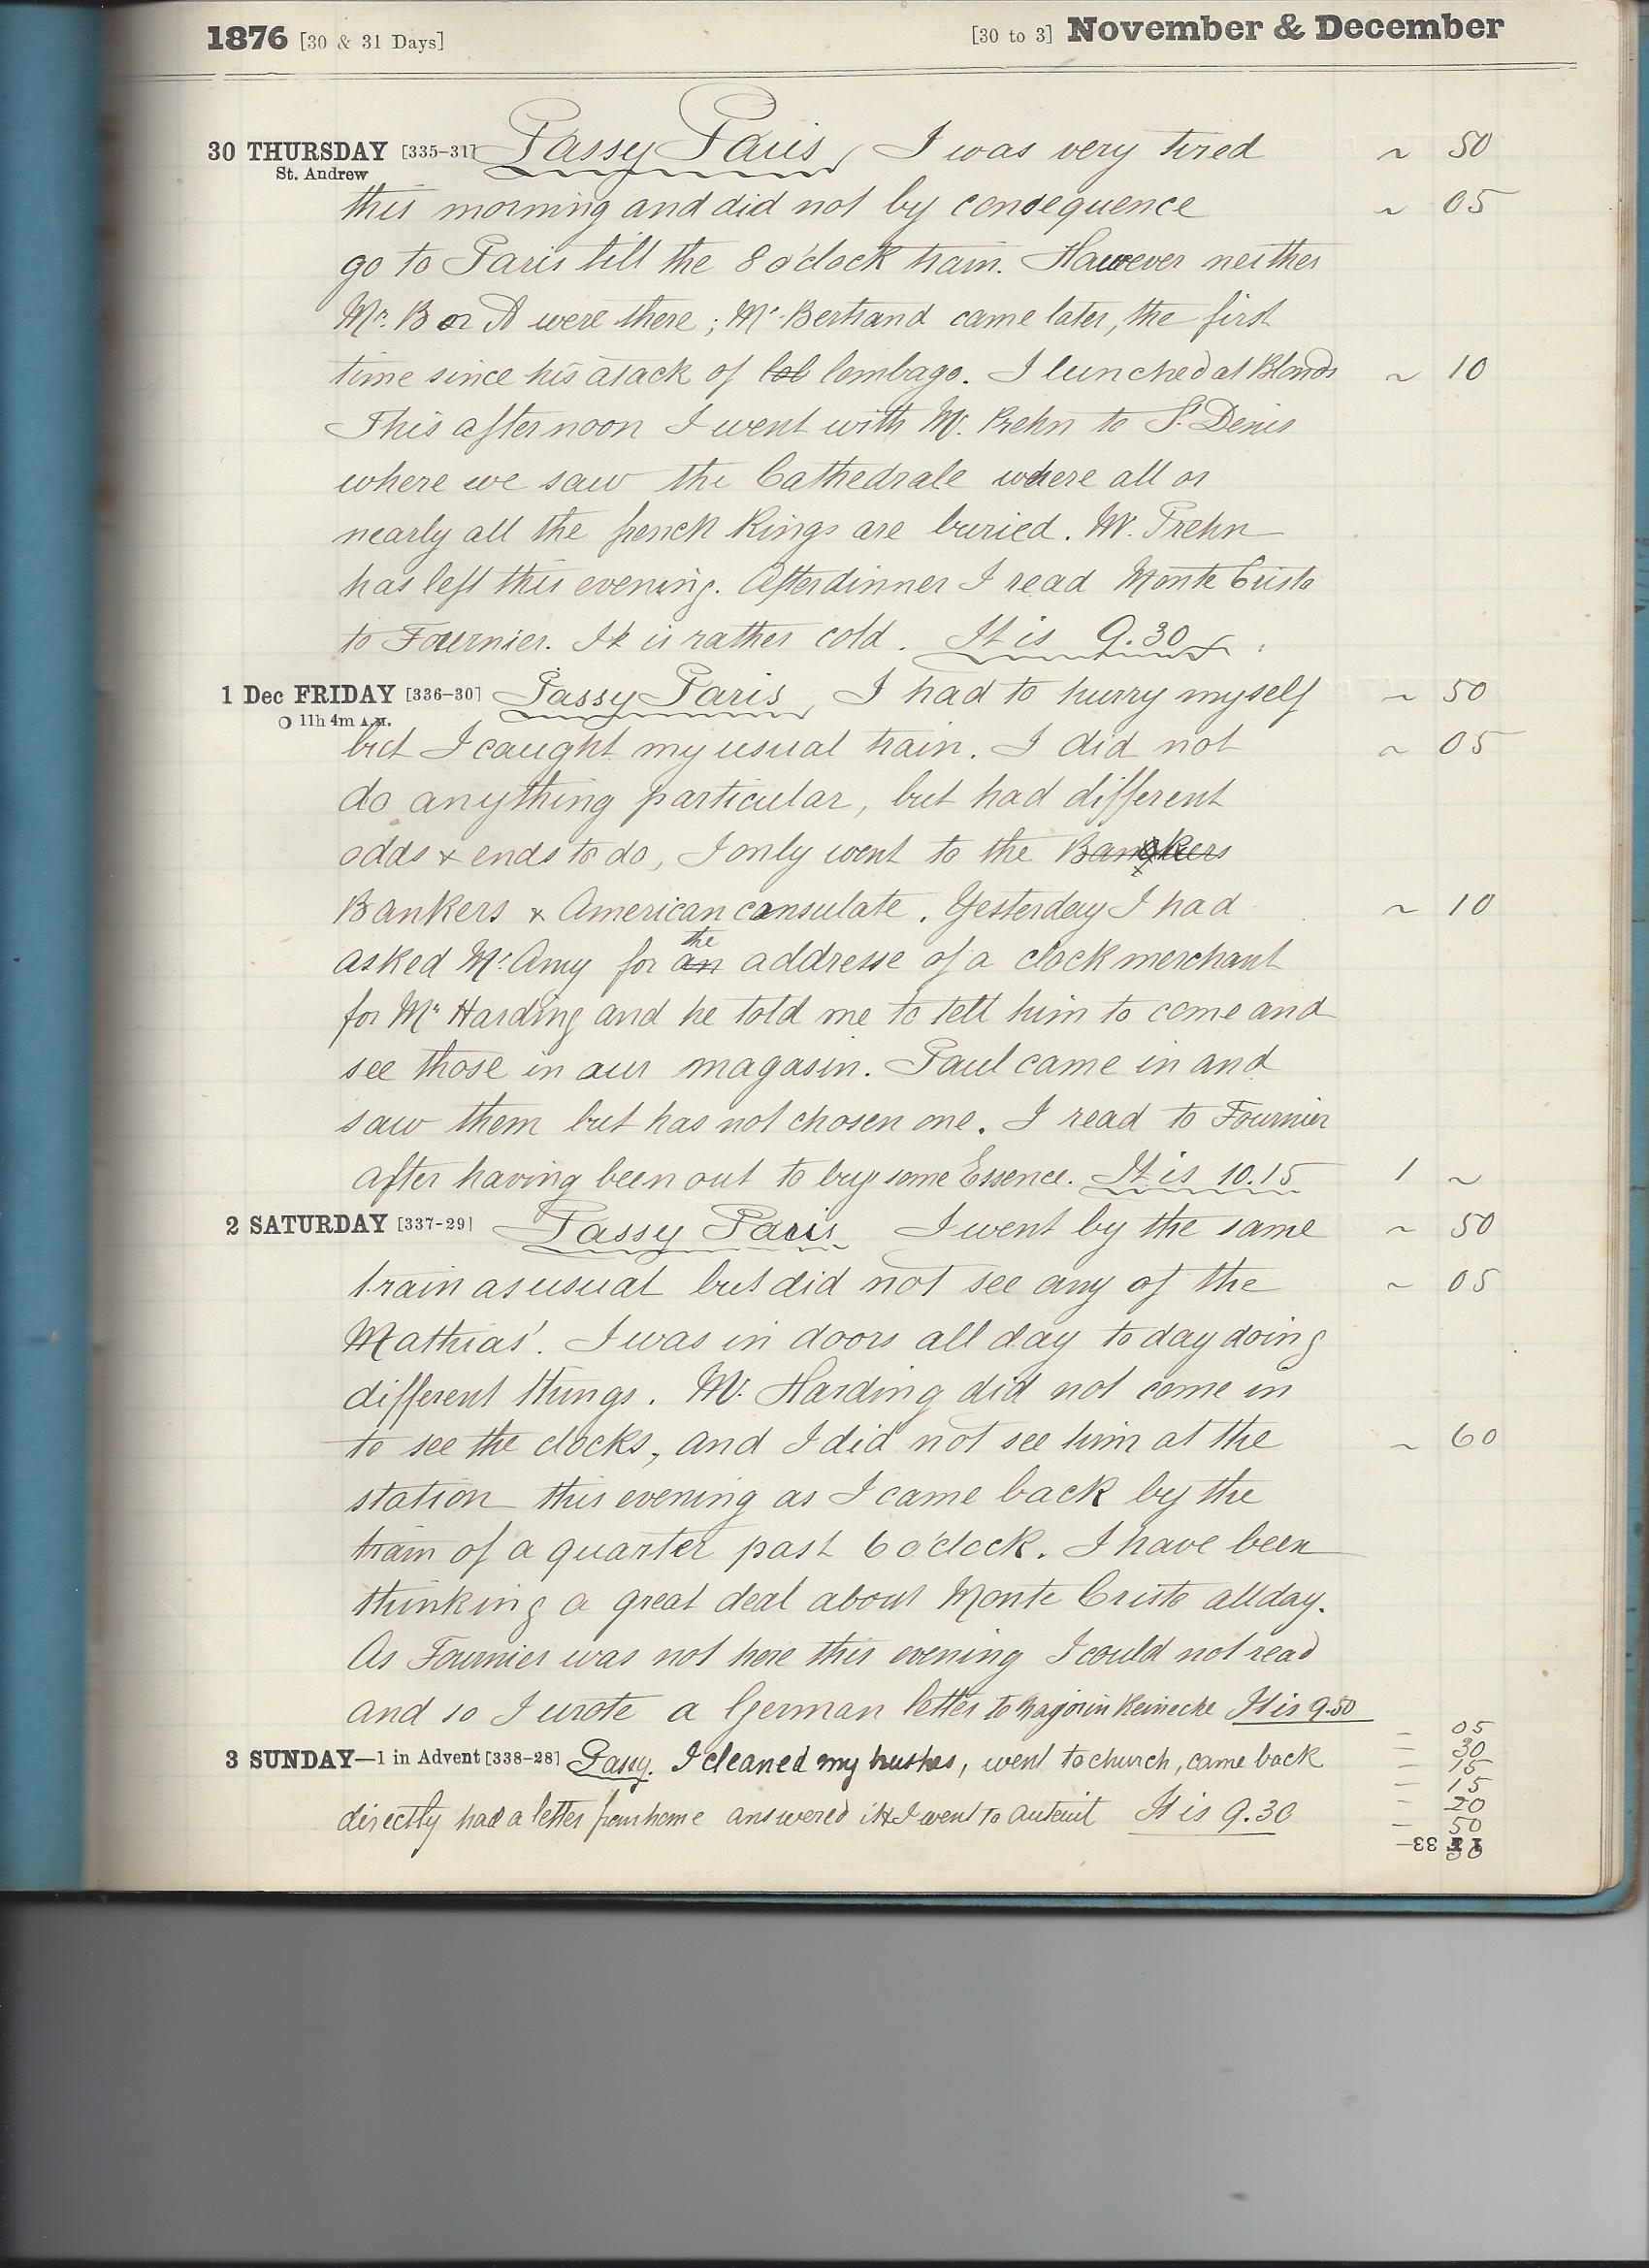 1876 [30 & 31 Days] [30 to 3] November & December
30 THURSDAY [335-31] Passy Paris, I was very tired ~ 50
St. Andrew
this morning and did not by consequence ~ 05
go to Paris till the 8 o'clock train. However neither
Mr. B or A were there; Mr. Bertrand came later, the first
time since his atack of lob lombago. I lunched at Blonds ~ 10
This afternoon I went with Mr. Prehn to St. Denis
where we saw the Cathedrale where all or
nearly all the french Kings are buried. Mr. Prehn
has left this evening. After dinner I read Monte Cristo
to Fournier. It is rather cold. It is 9.30
1 Dec FRIDAY [336-30] Passy Paris, I had to hurry myself ~ 50
11h 4m A.M.
but I caught my usual train. I did not ~ 05
do anything particular, but had different
odds & ends to do, I only went to the Bankers
Bankers & American consulate. Yesterday I had ~ 10
the
asked Mr. Amy for an addresse of a clock merchant
for Mr Harding and he told me to tell him to come and
see those in our magasin. Paul came in and
saw them but has not chosen one. I read to Fournier
after having been out to buy some Essence. It is 10.15 1 ~
2 SATURDAY [337-29] Passy Paris I went by the same ~ 50
train as usual but did not see any of the ~ 05
Mathias'. I was in doors all day to day doing
different things. Mr. Harding did not come in
to see the clocks, and I did not see him at the ~ 60
station this evening as I came back by the
train of a quarter past 6 o'clock. I have been
thinking a great deal about Monte Cristo all day.
As Fournier was not here this evening I could not read
and so I wrote a German letter to Reinecke It is 9.50
05
3 SUNDAY—1 in Advent [338-28] Passy. I cleaned my brushes, went to church, came back 30
15
15
directly had a letter from home answered it & I went to Auteuil It is 9.30 20
50
33